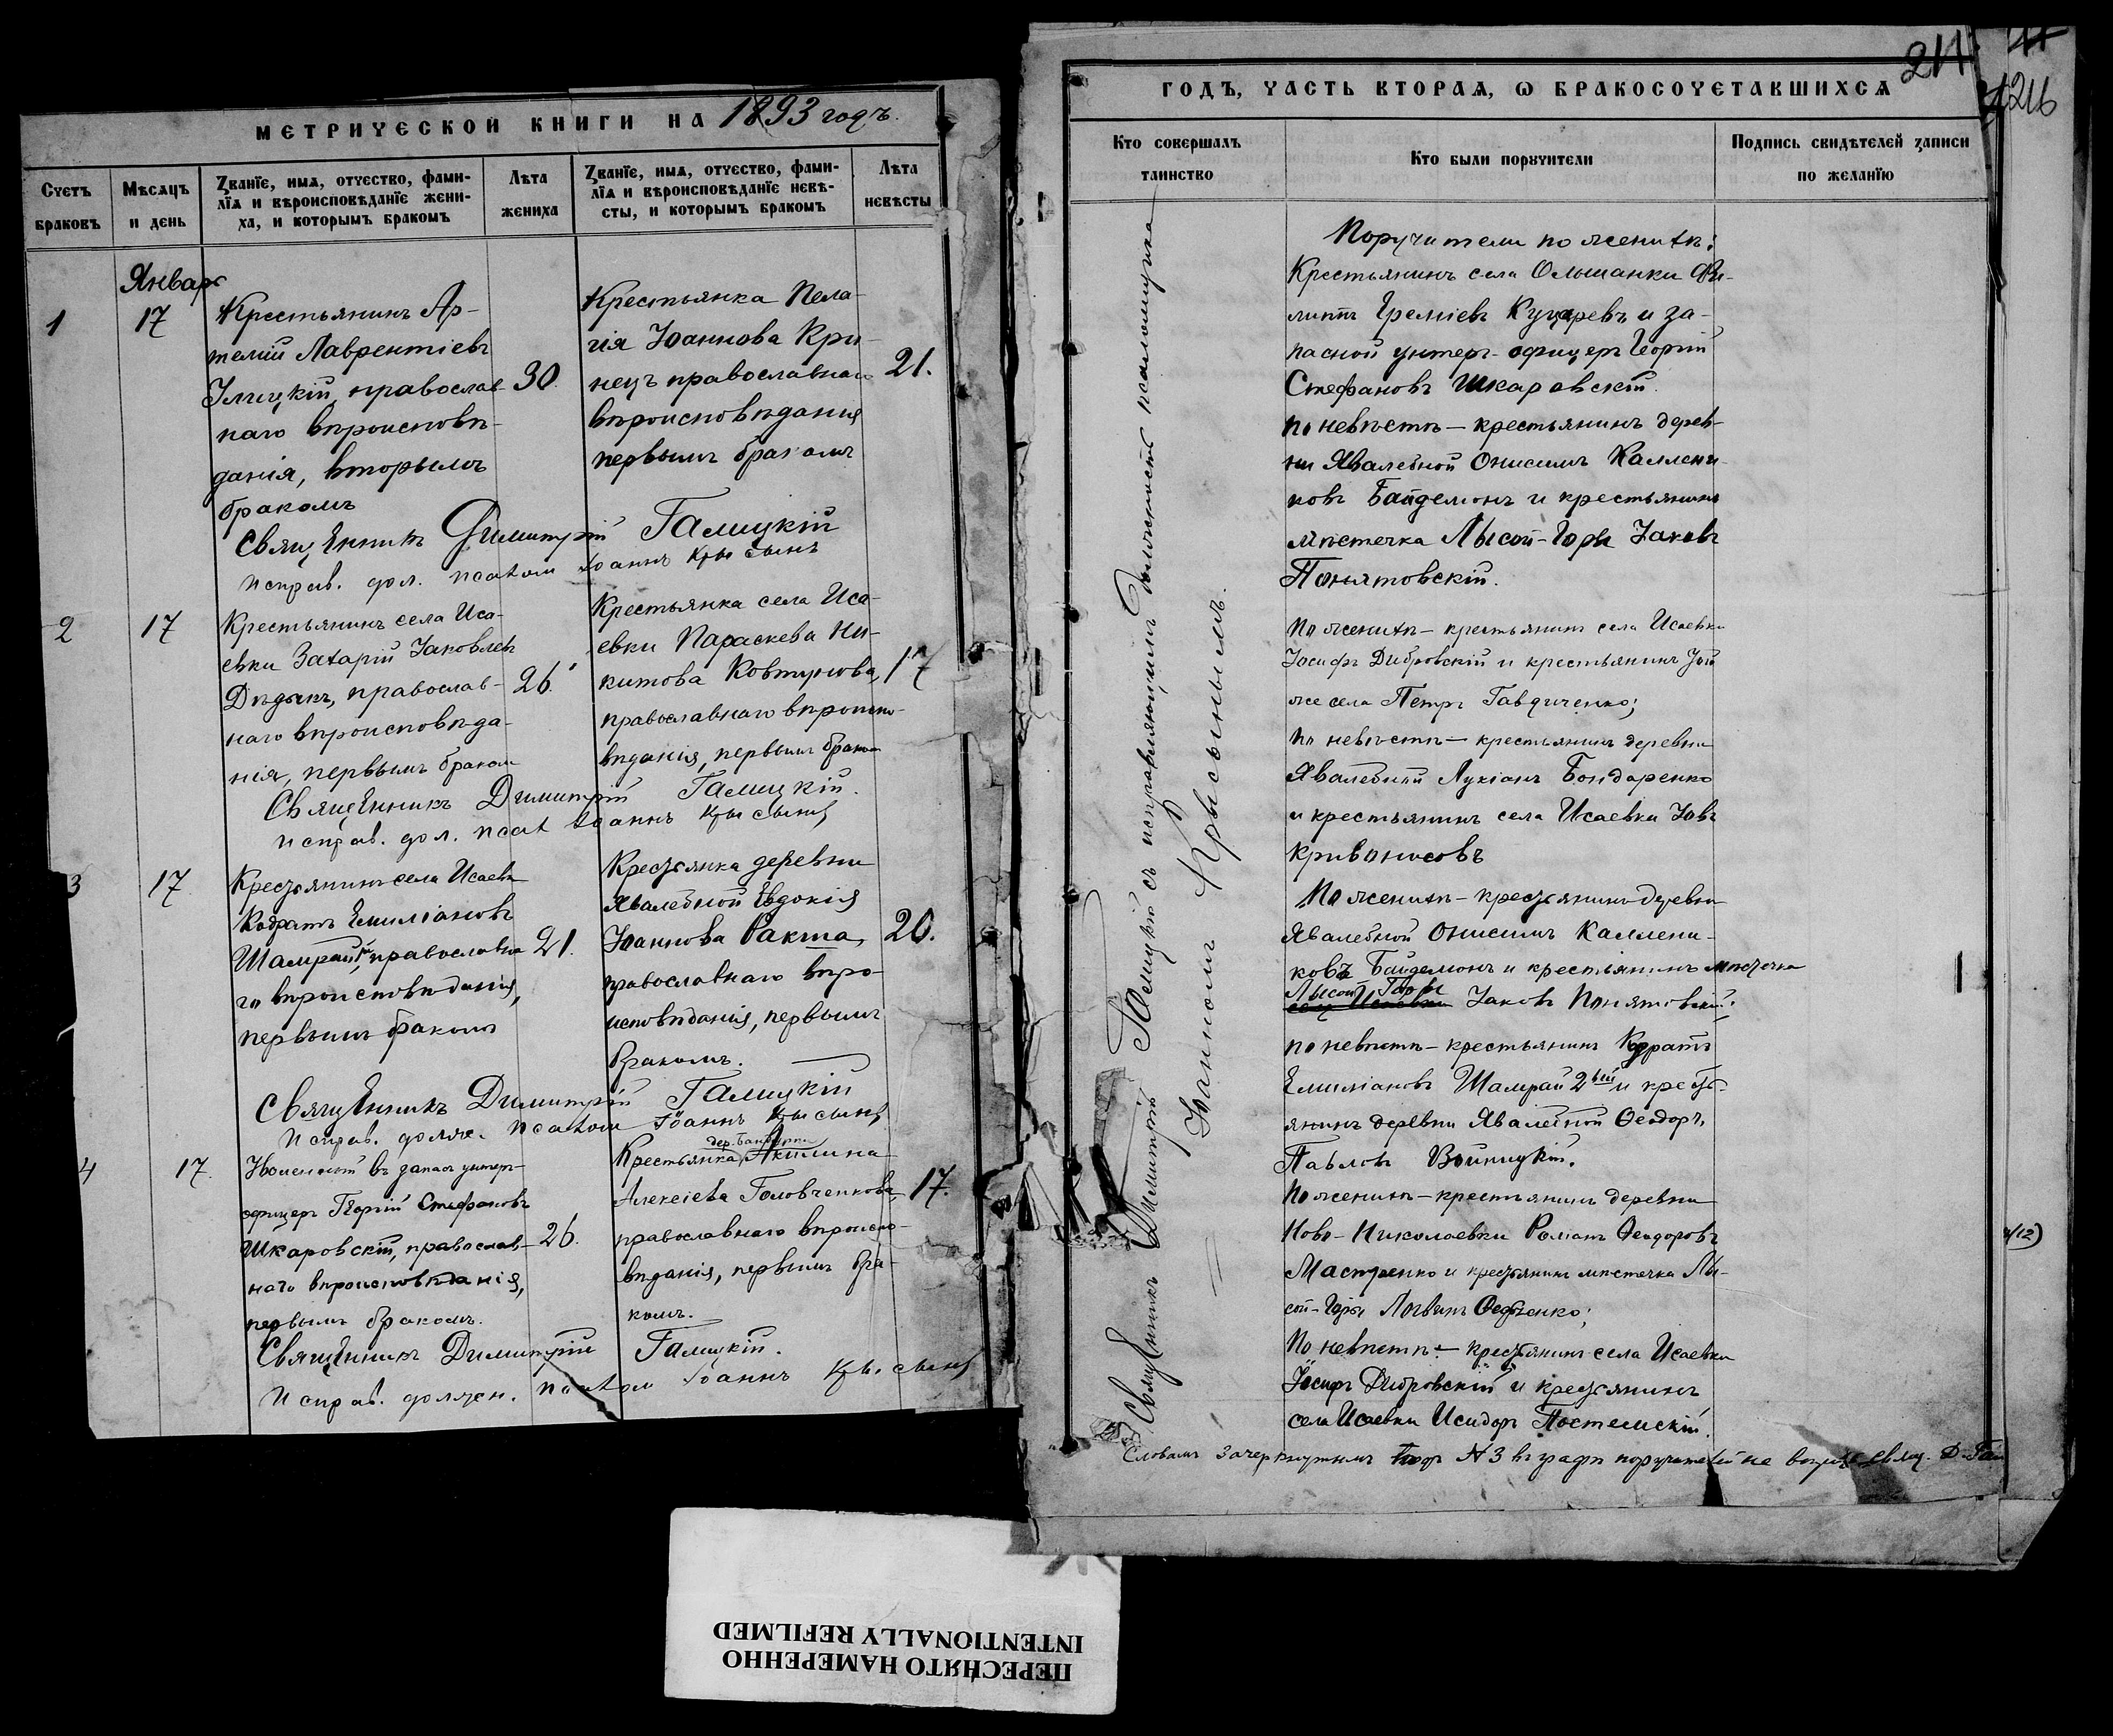 МЕТРИЧЕСКОЙ КНИГИ НА 1893 годъ.
Счетъ браковъ
Мѣсяцъ и день
Званїе, имя, отчество, фами-
лїя и вѣроисповѣданїе жени-
ха, и которымъ бракомъ
Лѣта жениха
Званїе, имя, отчество, фами-
лїя и вѣроисповѣданїе невѣ-
сты, и которымъ бракомъ
Лѣта невѣсты
Январь
1
17
Крестьянинъ Ар-
темій Лаврентіевъ
Ілицкій, православ-
наго вѣроисповѣ-
данія, вторымъ
бракомъ
30.
Крестьянка Пела-
гія Іоаннова Кри-
нецъ православнаго
вѣроисповѣданія
первымъ бракомъ
21.
Священникъ Димитрій Галицкій
исправ. дол. псалом Іоаннъ Крысинъ
2
17
Крестьянинъ села Иса-
евки Захарій Іаковлевъ
Дѣдыкъ, православ-
наго вѣроисповѣда-
нія, первымъ браком
26.
Крестьянка села Иса-
евки Параскева Ни-
китова Ковтунова,
православнаго вѣроиспо-
вѣданія, первымъ бракомъ
17
Священникъ Димитрій Галицкій.
исправ. дол. псал Іоаннъ Крысинъ
3
17.
Крестьянинъ села Исаевки
Кодратъ Емиліановъ
Шамрай, православна
го вѣроисповѣданія,
первымъ бракомъ
21.
Крестьянка деревни
Хвалебной Евдокія
Іоаннова Ракта,
православнаго вѣро-
исповѣданія, первымъ
бракомъ.
20.
Священникъ Димитрій Галицкій
исправ. долже. псалом Іоаннъ Крысинъ
4
17.
Уволенный въ запасъ унтер-
офицеръ Георгій Стефановъ
Шкаровскій, православ-
наго вѣроисповѣданія,
первымъ бракомъ.
26.
Крестьянка дер. Акилина
Алексіева Головченкова
православнаго вѣроиспо-
вѣданія, первымъ бра-
комъ.
17.
Священникъ Димитрій Галицкій.
исправ. должен. псалом Іоаннъ Крысинъ
ГОДЪ, ЧАСТЬ ВТОРАЯ, Ѡ БРАКОСОЧЕТАВШИХСЯ
214
216
Кто совершалъ
таинство
Кто были поручители
Подпись свидѣтелей записи
по желанїю
Священникъ Димитрій Галицкій съ исправляющимъ должность псаломщика
Іоанномъ Крысинымъ.
Поручители по женихѣ:
Крестьянинъ села Ольшанки Фи-
липпъ Іереміевъ Куцаревъ и за-
пасной унтеръ-офицеръ Георгій
Стефановъ Шкаровскій.
по невѣстѣ — крестьянинъ дерев-
ни Хвалебной Онисимъ Каллени-
ковъ Байдемонъ и крестьянинъ
мѣстечка Лысой-Горы Іаковъ
Понятовскій.
По женихѣ — крестьянинъ села Исаевки
Іосифъ Дибровскій и крестьянинъ той
же села Петръ Гавдиченко;
по невѣстѣ — крестьянинъ деревни
Хвалебной Лукіанъ Бондаренко
и крестьянинъ села Исаевки Іовъ
Кривоносовъ
По женихѣ — крестьянинъ деревни
Хвалебной Онисимъ Каллени-
ковъ Байдемонъ и крестьянинъ мѣстечка
Лысой Горы Іаковъ Понятовскій;
по невѣстѣ — крестьянинъ Кодратъ
Емиліановъ Шамрай 2ый и кресть-
янинъ деревни Хвалебной Ѳеодоръ
Павловъ Войницкій.
По женихѣ — крестьянинъ деревни
Ново-Николаевки Романъ Ѳеодоровъ
Мастренко и крестьянинъ мѣстечка Лы-
сой-Горы Логвинъ
По невѣстѣ — крестьянинъ села Исаевки
Іосифъ Дибровскій и крестьянинъ
села Исаевки Исидоръ Постемскій.
Словамъ зачеркнутымъ подъ № 3 въ графѣ поручителей не вѣрить свящ. Д. Гал
ПЕРЕСНЯТО НАМЕРЕННО
INTENTIONALLY REFILMED